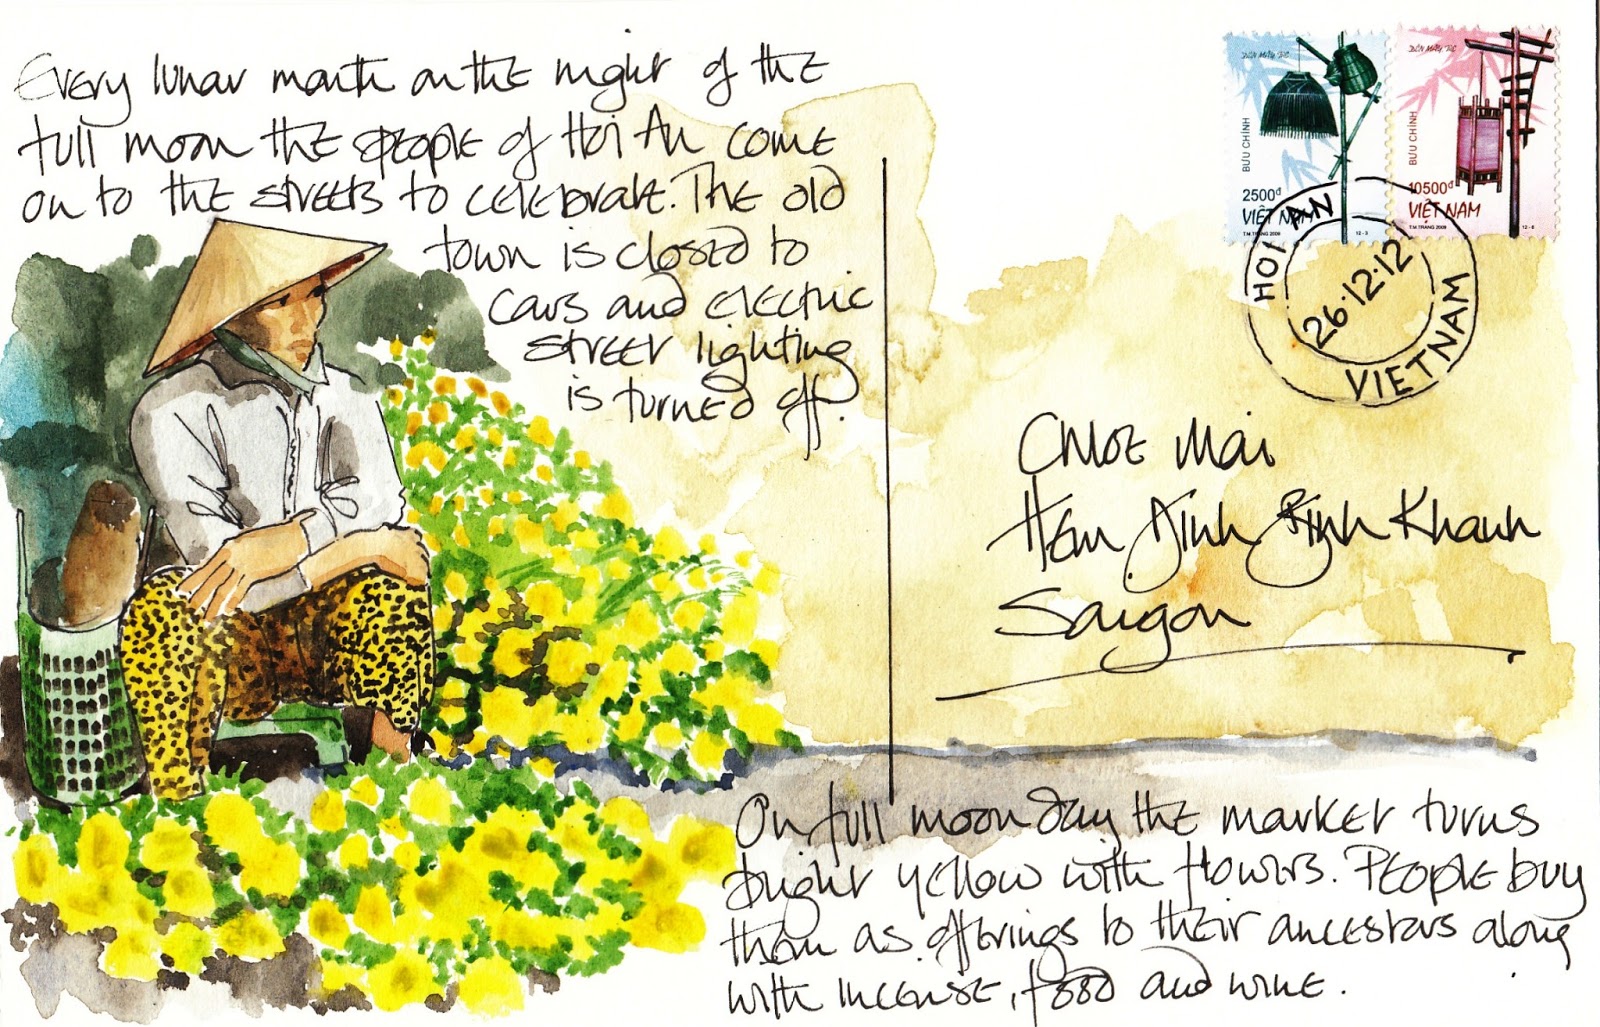 Every lunar month on the night of the
full moon the people of Hoi An come
on to the streets to celebrate. The old
town is closed to
cars and electric
street lighting
is turned off.
BƯU CHÍNH
2500đ
VIỆT NAM
T.M.TRANG 2009
12-3
BƯU CHÍNH
10500đ
VIỆT NAM
T.M.TRANG 2009
12-6
HOI AN
26·12·12
VIETNAM
Chloe Mai
Hẻm Dinh Bình Khanh
Saigon
On full moon day the market turns
bright yellow with flowers. People buy
them as offerings to their ancestors along
with incense, food and wine.